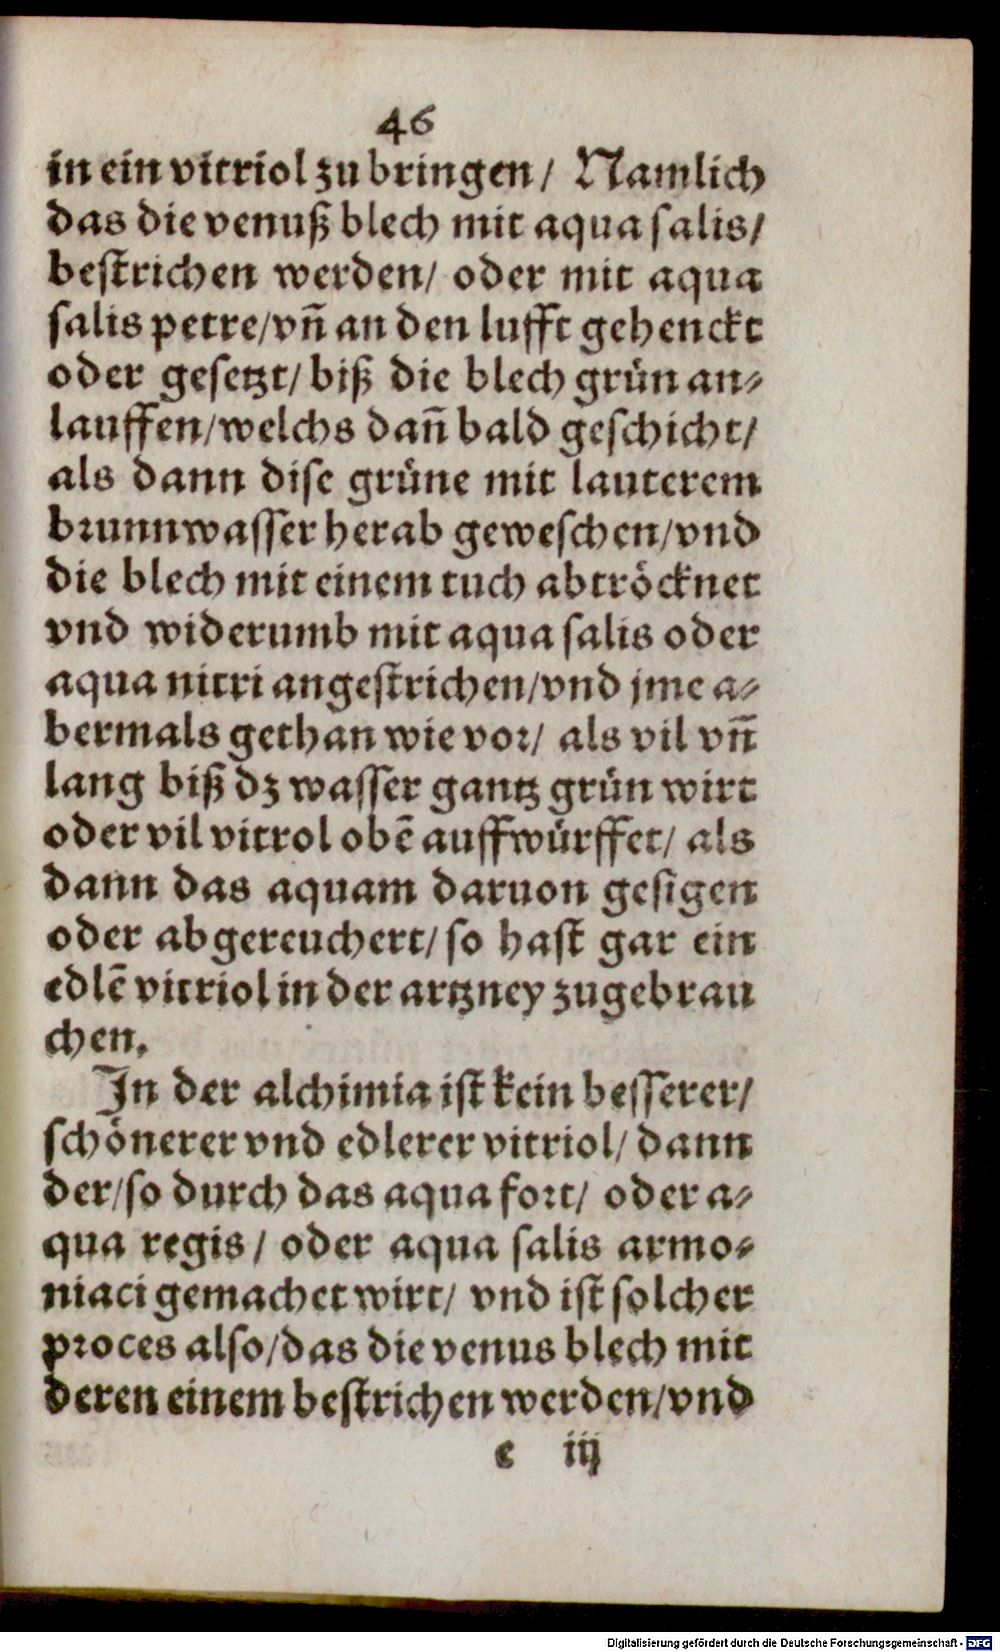 46
in ein vitriol zu bringen/ Namlich
das die venuß blech mit aqua salis/
bestrichen werden/ oder mit aqua
salis petre/vñ an den lufft gehenckt
oder gesetzt/ biß die blech grün an⸗
lauffen/welchs dañ bald geschicht/
als dann dise grüne mit lauterem
brunnwasser herab geweschen/vnd
die blech mit einem tuch abtröcknet
vnd widerumb mit aqua salis oder
aqua nitri angestrichen/vnd jme a⸗
bermals gethan wie vor/ als vil vñ
lang biß dz wasser gantz grün wirt
oder vil vitrol obē auffwürffet/ als
dann das aquam daruon gesigen
oder abgereuchert/ so hast gar ein
edlē vitriol in der artzney zugebrau
chen.
In der alchimia ist kein besserer/
schönerer vnd edlerer vitriol/ dann
der/so durch das aqua fort/ oder a⸗
qua regis/ oder aqua salis armo⸗
niaci gemachet wirt/ vnd ist solcher
proces also/das die venus blech mit
deren einem bestrichen werden/vnd
c iij
Digitalisierung gefördert durch die Deutsche Forschungsgemeinschaft - DFG